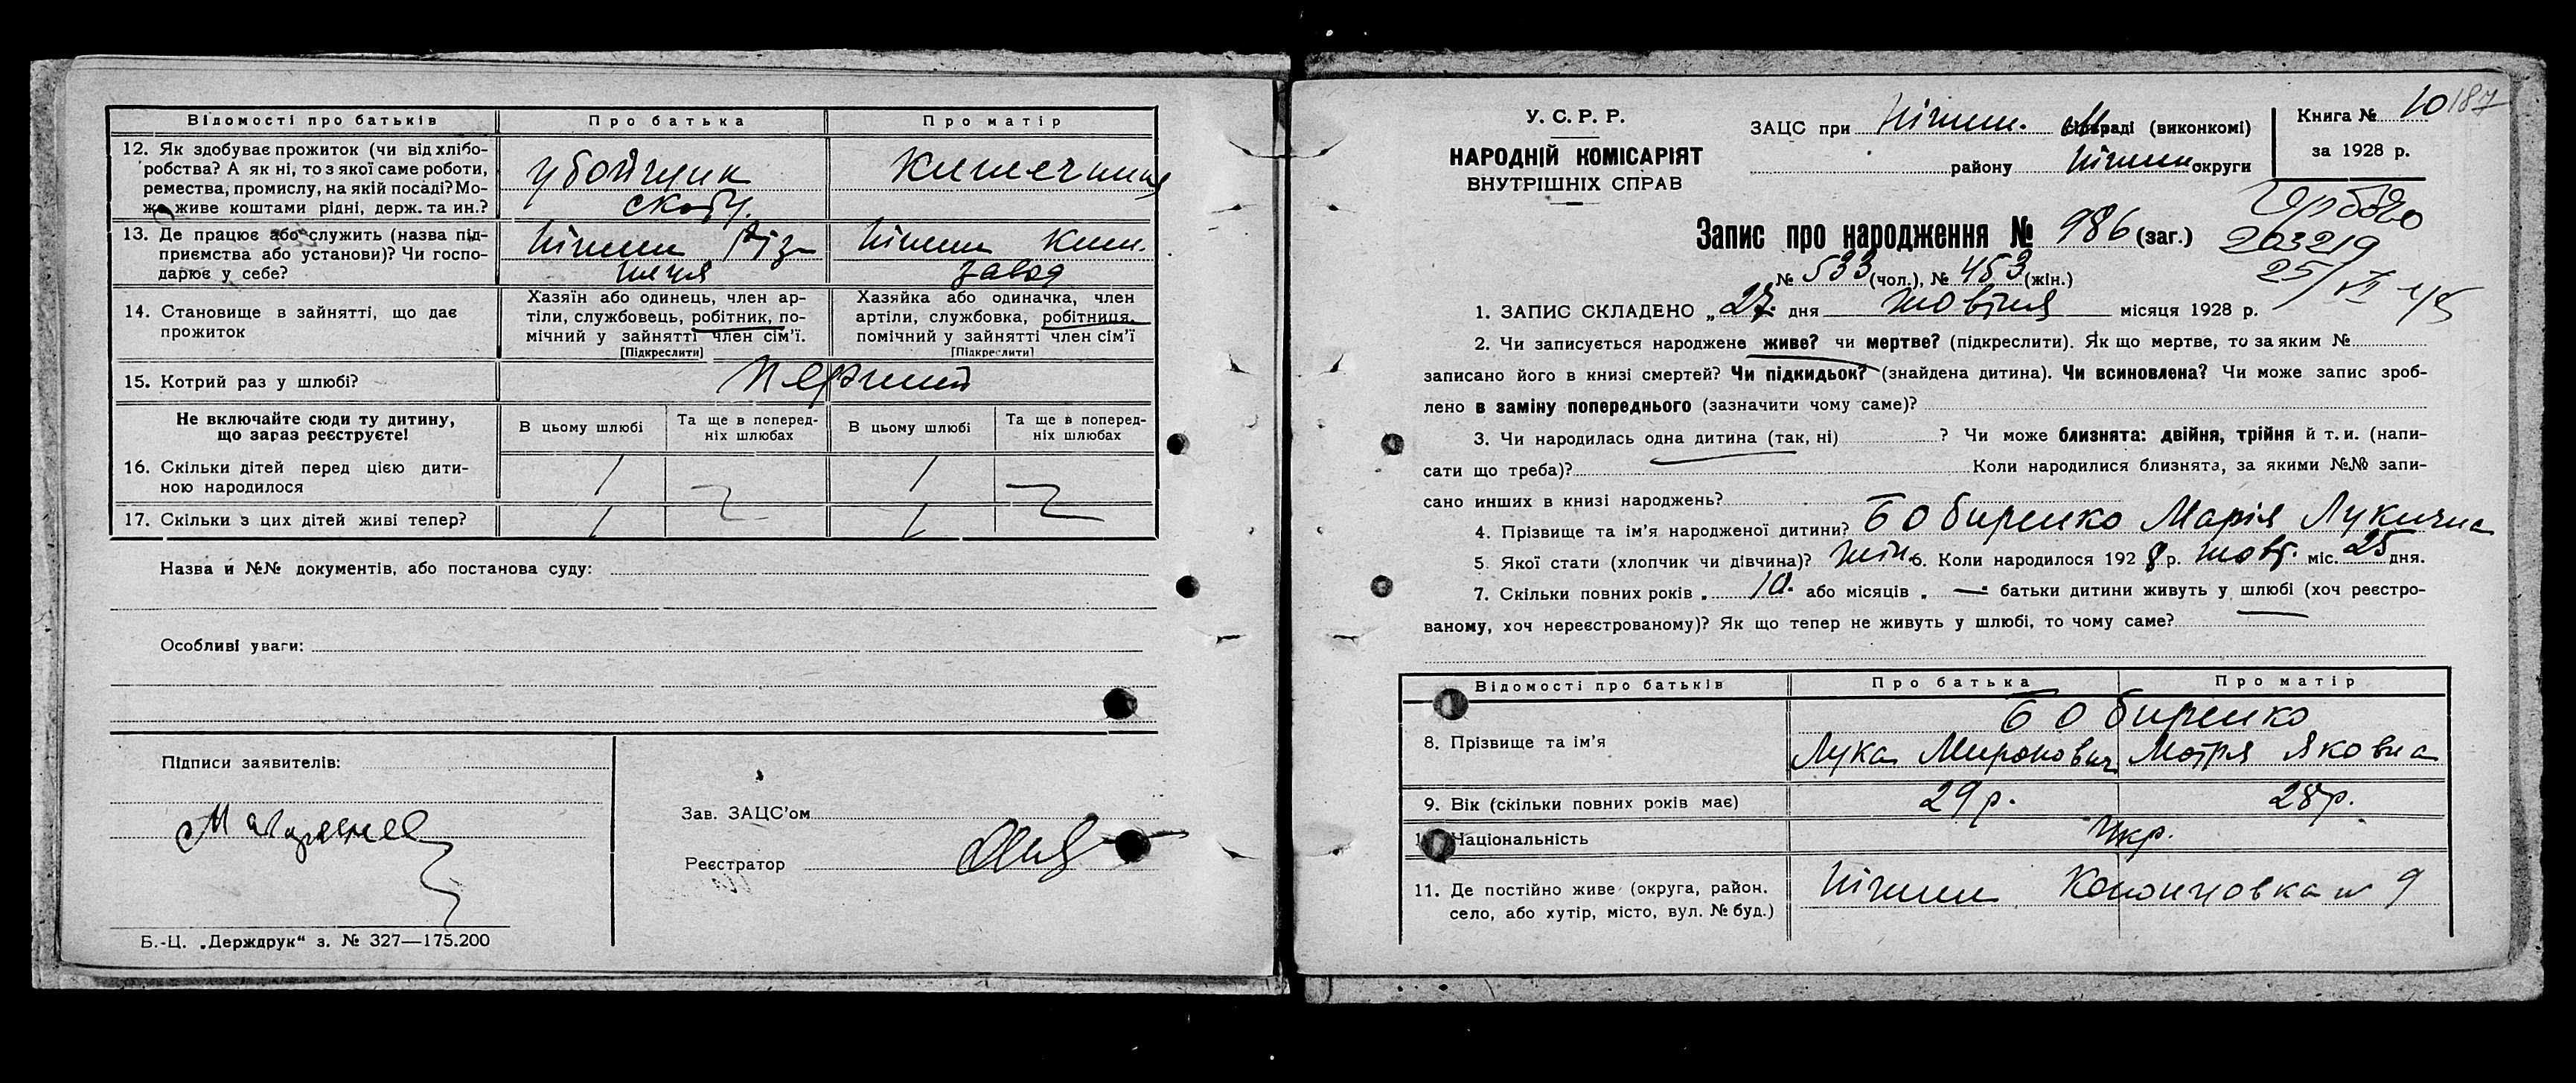 Відомості про батьків Про батька Про матір
12. Як здобуває прожиток (чи від хлібо-
робства? А як ні, то з якої саме роботи,
ремества, промислу, на якій посаді? Мо-
же живе коштами рідні, держ. та ин.?
убойщик
скоту.
Кишечниця
13. Де працює або служить (назва під-
приємства або установи)? Чи госпо-
дарює у себе?
Ніжин Різ-
ниця
Ніжин Киш.
завод
14. Становище в зайнятті, що дає
прожиток
Хазяїн або одинець, член ар-
тіли, службовець, робітник, по-
мічний у зайнятті член сім'ї.
[Підкреслити]
Хазяйка або одиначка, член
артіли, службовка, робітниця,
помічний у зайнятті член сім'ї
[Підкреслити]
15. Котрий раз у шлюбі?
Перший
Не включайте сюди ту дитину,
що зараз реєструєте!
В цьому шлюбі
Та ще в поперед-
ніх шлюбах
В цьому шлюбі
Та ще в поперед-
ніх шлюбах
16. Скільки дітей перед цією дити-
ною народилося
1 1
17. Скільки з цих дітей живі тепер?
1 1
Назва й №№ документів, або постанова суду:
Особливі уваги:
Підписи заявителів:
Зав. ЗАЦС'ом
Реєстратор
Б.-Ц. „Держдрук“ з. № 327—175.200
У. С. Р. Р.
НАРОДНІЙ КОМІСАРІЯТ
ВНУТРІШНІХ СПРАВ
ЗАЦС при Ніжин. раді (виконкомі)
району Ніжин округи
Книга № 10 187
за 1928 р.
203219
25/VI 45
Запис про народження № 986 (заг.)
№ 533 (чол.), № 453 (жін.)
1. ЗАПИС СКЛАДЕНО „27“ дня жовтня місяця 1928 р.
2. Чи записується народжене живе? чи мертве? (підкреслити). Як що мертве, то за яким №
записано його в книзі смертей? Чи підкидьок? (знайдена дитина). Чи всиновлена? Чи може запис зроб-
лено в заміну попереднього (зазначити чому саме)?
3. Чи народилась одна дитина (так, ні) ? Чи може близнята: двійня, трійня й т. и. (напи-
сати що треба)? Коли народилися близнята, за якими №№ запи-
сано инших в книзі народжень?
4. Прізвище та ім'я народженої дитини? Бобиренко Марія Лукична
5. Якої стати (хлопчик чи дівчина)? жін. 6. Коли народилося 1928 р. жовт. міс. 25 дня.
7. Скільки повних років „ 10. або місяців „ — “ батьки дитини живуть у шлюбі (хоч реєстро-
ваному, хоч нереєстрованому)? Як що тепер не живуть у шлюбі, то чому саме?
Відомості про батьків Про батька Про матір
Бобиренко
8. Прізвище та ім'я Лука Миронович Мотря Яковна
9. Вік (скільки повних років має) 29 р. 28 р.
Національність Укр.
11. Де постійно живе (округа, район.
село, або хутір, місто, вул. № буд.)
Ніжин 9